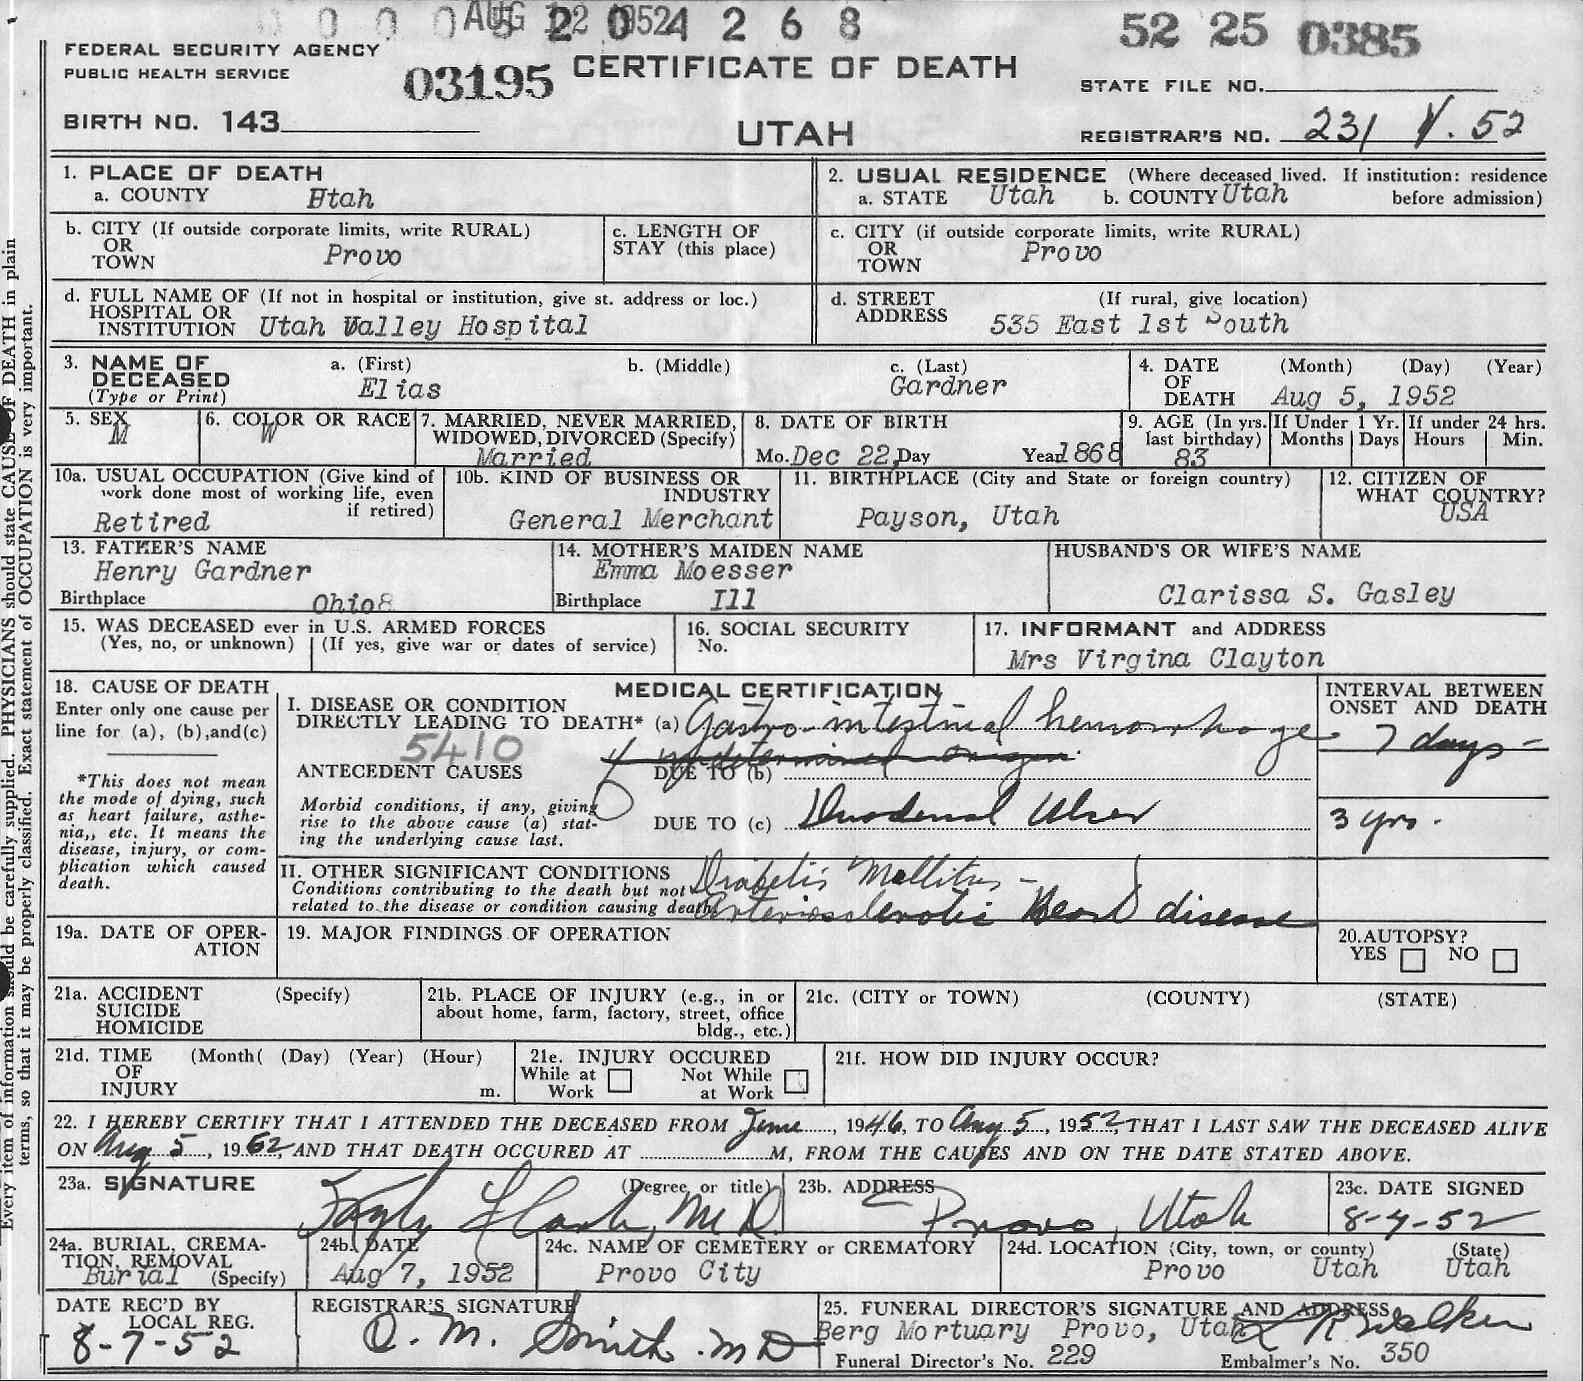 AUG 12 1952
0 0 0 5 2 0 4 2 6 8
52 25 0385
FEDERAL SECURITY AGENCY
PUBLIC HEALTH SERVICE
03195
CERTIFICATE OF DEATH
STATE FILE NO.
BIRTH NO. 143
UTAH
REGISTRAR'S NO. 231 V. 52
1. PLACE OF DEATH
a. COUNTY Utah
2. USUAL RESIDENCE (Where deceased lived. If institution: residence
a. STATE Utah b. COUNTY Utah before admission)
b. CITY (If outside corporate limits, write RURAL)
OR
TOWN Provo
c. LENGTH OF
STAY (this place)
c. CITY (if outside corporate limits, write RURAL)
OR
TOWN Provo
d. FULL NAME OF (If not in hospital or institution, give st. address or loc.)
HOSPITAL OR
INSTITUTION Utah Valley Hospital
d. STREET (If rural, give location)
ADDRESS 535 East 1st South
3. NAME OF
DECEASED
(Type or Print)
a. (First)
Elias
b. (Middle)
c. (Last)
Gardner
4. DATE (Month) (Day) (Year)
OF
DEATH Aug 5, 1952
5. SEX
M
6. COLOR OR RACE
W
7. MARRIED, NEVER MARRIED,
WIDOWED, DIVORCED (Specify)
Married
8. DATE OF BIRTH
Mo. Dec 22, Day Year 1868
9. AGE (In yrs.
last birthday)
83
If Under 1 Yr.
Months Days
If under 24 hrs.
Hours Min.
10a. USUAL OCCUPATION (Give kind of
work done most of working life, even
if retired)
Retired
10b. KIND OF BUSINESS OR
INDUSTRY
General Merchant
11. BIRTHPLACE (City and State or foreign country)
Payson, Utah
12. CITIZEN OF
WHAT COUNTRY?
USA
13. FATHER'S NAME
Henry Gardner
Birthplace Ohio
14. MOTHER'S MAIDEN NAME
Emma Moesser
Birthplace Ill
HUSBAND'S OR WIFE'S NAME
Clarissa S. Gasley
15. WAS DECEASED ever in U.S. ARMED FORCES
(Yes, no, or unknown) (If yes, give war or dates of service)
16. SOCIAL SECURITY
No.
17. INFORMANT and ADDRESS
Mrs Virgina Clayton
18. CAUSE OF DEATH
Enter only one cause per
line for (a), (b),and(c)
*This does not mean
the mode of dying, such
as heart failure, asthe-
nia,, etc. It means the
disease, injury, or com-
plication which caused
death.
MEDICAL CERTIFICATION
I. DISEASE OR CONDITION
DIRECTLY LEADING TO DEATH* (a) Gastro-intestinal hemorrhage
5410
of undetermined origin
ANTECEDENT CAUSES DUE TO (b)
Morbid conditions, if any, giving
rise to the above cause (a) stat-
ing the underlying cause last.
DUE TO (c) Duodenal Ulcer
INTERVAL BETWEEN
ONSET AND DEATH
7 days -
3 yrs.
II. OTHER SIGNIFICANT CONDITIONS
Conditions contributing to the death but not
related to the disease or condition causing death.
Diabetis Mellitus -
Arteriosclerotic Heart disease
19a. DATE OF OPER-
ATION
19. MAJOR FINDINGS OF OPERATION
20.AUTOPSY?
YES NO
21a. ACCIDENT (Specify)
SUICIDE
HOMICIDE
21b. PLACE OF INJURY (e.g., in or
about home, farm, factory, street, office
bldg., etc.)
21c. (CITY or TOWN) (COUNTY) (STATE)
21d. TIME (Month( (Day) (Year) (Hour)
OF
INJURY m.
21e. INJURY OCCURED
While at Work
Not While at Work
21f. HOW DID INJURY OCCUR?
22. I HEREBY CERTIFY THAT I ATTENDED THE DECEASED FROM June, 1946, TO Aug 5, 1952, THAT I LAST SAW THE DECEASED ALIVE
ON Aug 5, 1952 AND THAT DEATH OCCURED AT M, FROM THE CAUSES AND ON THE DATE STATED ABOVE.
23a. SIGNATURE (Degree or title)
M D
23b. ADDRESS
Provo, Utah
23c. DATE SIGNED
8-7-52
24a. BURIAL, CREMA-
TION, REMOVAL
Burial (Specify)
24b. DATE
Aug 7, 1952
24c. NAME OF CEMETERY or CREMATORY
Provo City
24d. LOCATION (City, town, or county) (State)
Provo Utah Utah
DATE REC'D BY
LOCAL REG.
8-7-52
REGISTRAR'S SIGNATURE
O. M. Smith. M D
25. FUNERAL DIRECTOR'S SIGNATURE AND ADDRESS
Berg Mortuary Provo, Utah Walker
Funeral Director's No. 229 Embalmer's No. 350
Every item of information should be carefully supplied. PHYSICIANS should state CAUSE OF DEATH in plain
terms, so that it may be properly classified. Exact statement of OCCUPATION is very important.